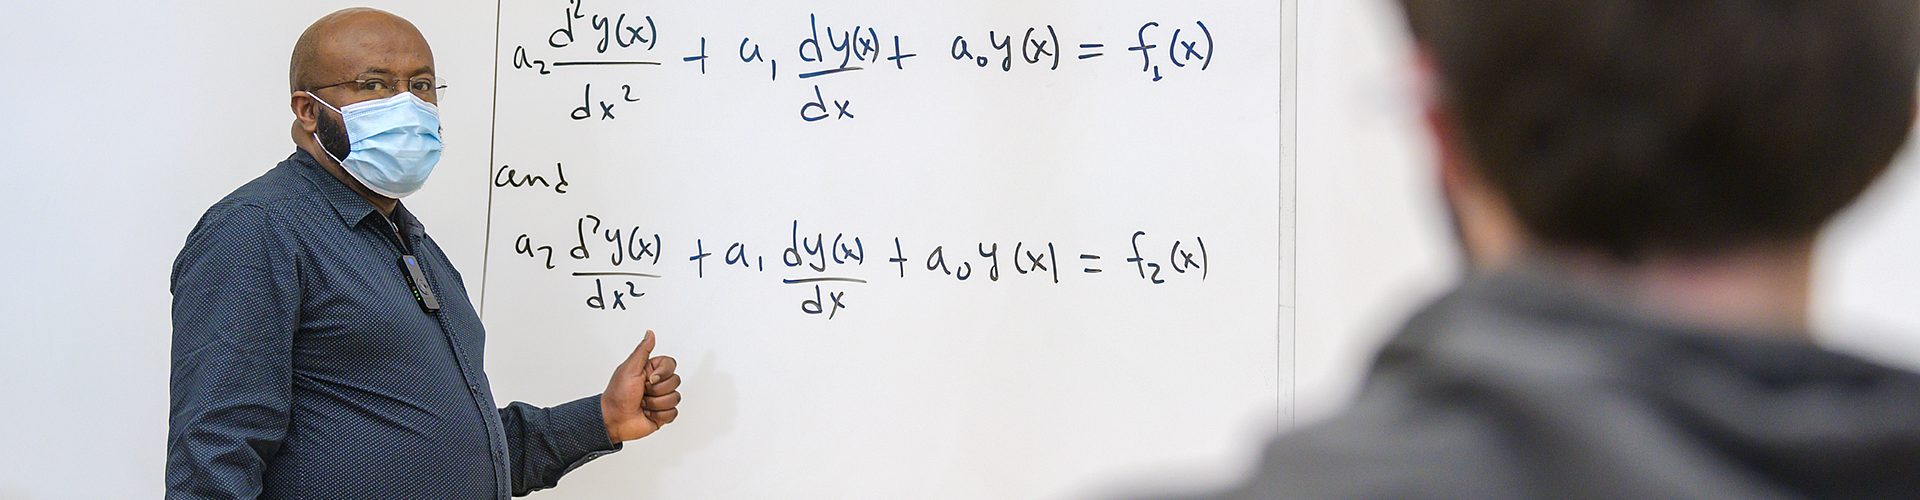 a₂ d²y(x)/dx² + a₁ dy(x)/dx + a₀y(x) = f₁(x)
and
a₂ d²y(x)/dx² + a₁ dy(x)/dx + a₀y(x) = f₂(x)